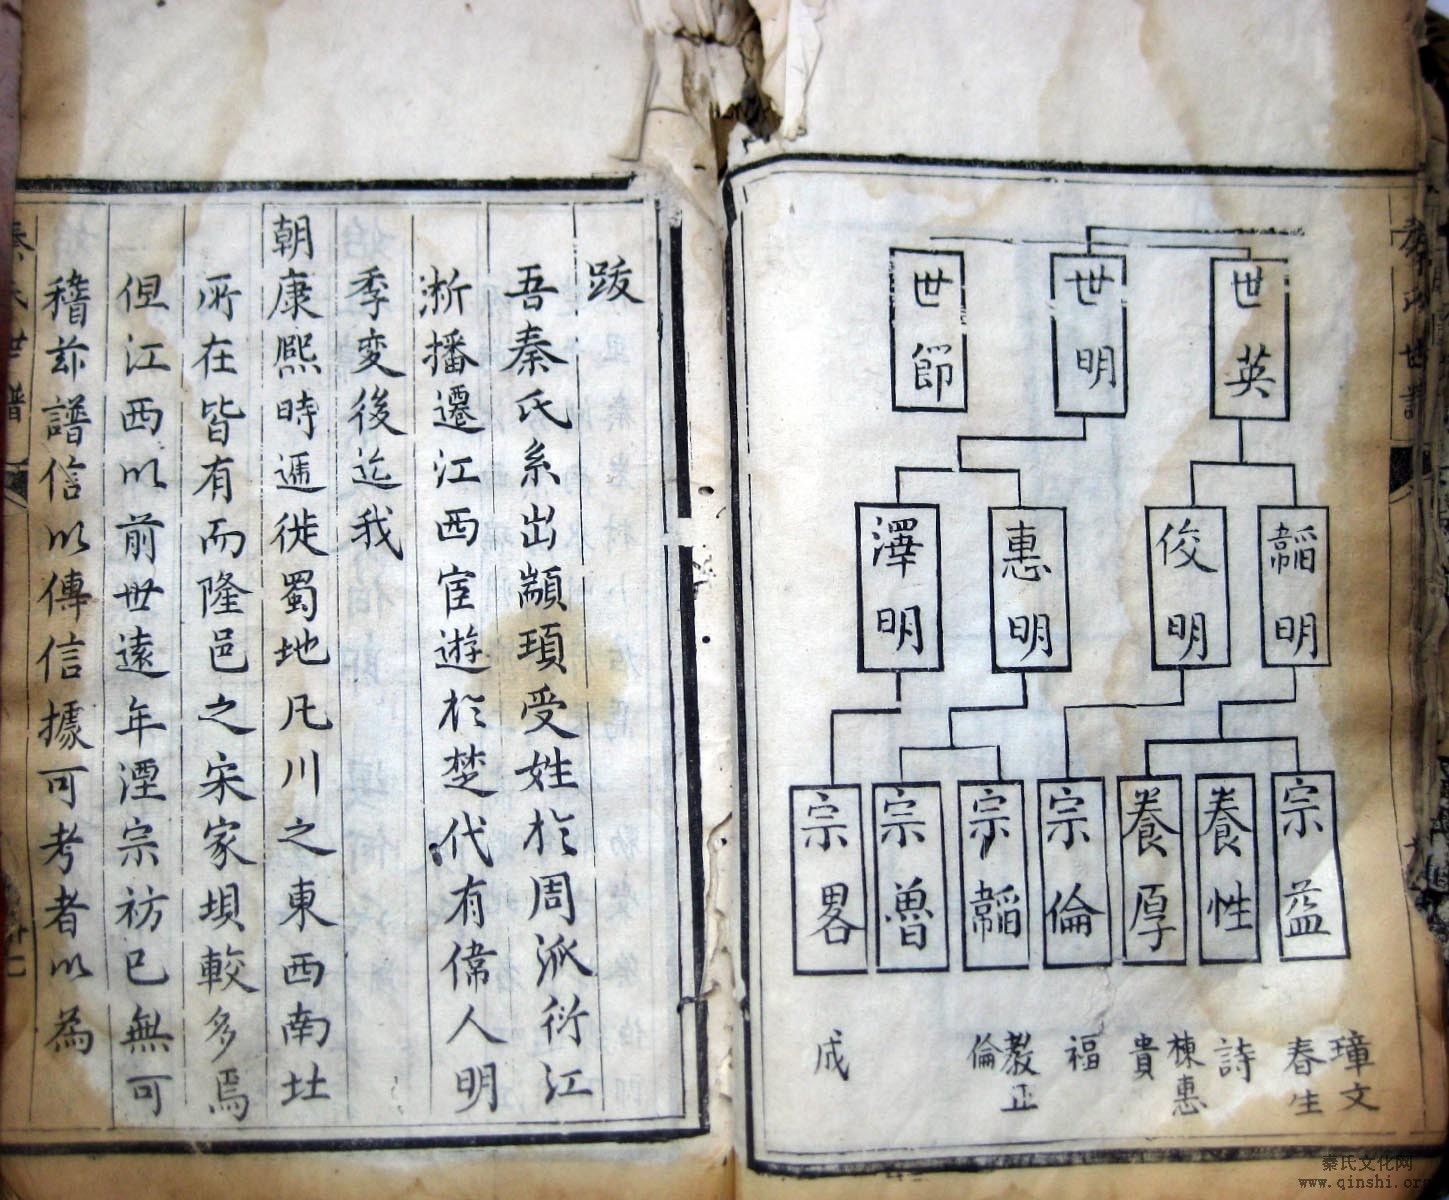 世英
世明
世節
韜明
俊明
惠明
澤明
宗益
養性
養厚
宗倫
宗韜
宗魯
宗畧
璋文
春生
詩
棟惠
貴
福
教正
倫
成
跋
吾秦氏系出顓頊受姓於周派衍江
淅播遷江西宦遊於楚代有偉人明
季變後迄我
朝康熙時遞徙蜀地凡川之東西南北
所在皆有而隆邑之宋家垻較多焉
但江西以前世遠年湮宗祊已無可
稽茲譜信以傳信據可考者以為
秦氏世譜
秦氏文化网
www.qinshi.org